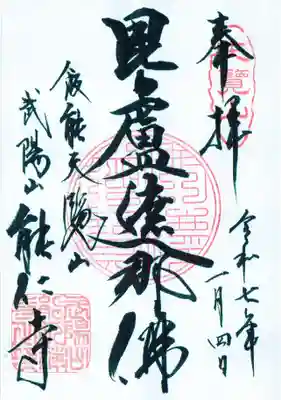 奉拝
令和七年
一月四日
毘盧遮那佛
飯能天覧山
武陽山能仁寺